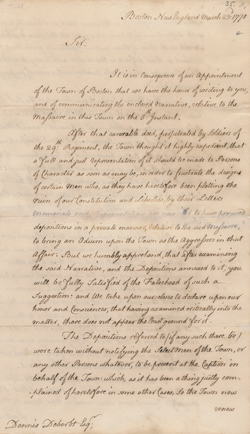 Boston New England March 23d 1770
Sir.
It is in consequence of an Appointment
of the Town of Boston that we have the honor of writing to you,
and of communicating the inclosed Narrative, relative to the
Massacre in this Town on the 5th Instant.
After that execrable deed, perpetrated by Soldiers
of the 29th Regiment, the Town thought it highly expedient, that
a full and just Representation of it should be made to Persons
of Character as soon as may be, in order to frustrate the designs
of certain Men who, as they have heretofore been plotting the
Ruin of our Constitution and Liberties by their Letters
Memorials and
to have procured
depositions in a private manner, relative to the said Massacre,
to bring an Odium upon the Town as the Aggressors in that
Affair: But we humbly apprehend, that after examining
the said Narrative, and the Depositions annexed to it, you
will be fully Satisfied of the Falsehood of such a
Suggestion; and We take upon ourselves to declare upon our
honor and Consciences, that having examined critically into the
matter, there does not appear the least ground for it.
The Depositions referred to (if any such there be)
were taken without notifying the Select Men of the Town, or
any other Persons whatever, to be present at the Caption in
behalf of the Town: which, as it has been a thing justly com-
plained of heretofore in some other Cases, So the Town now
renew
Dennis Deberdt Esqr.